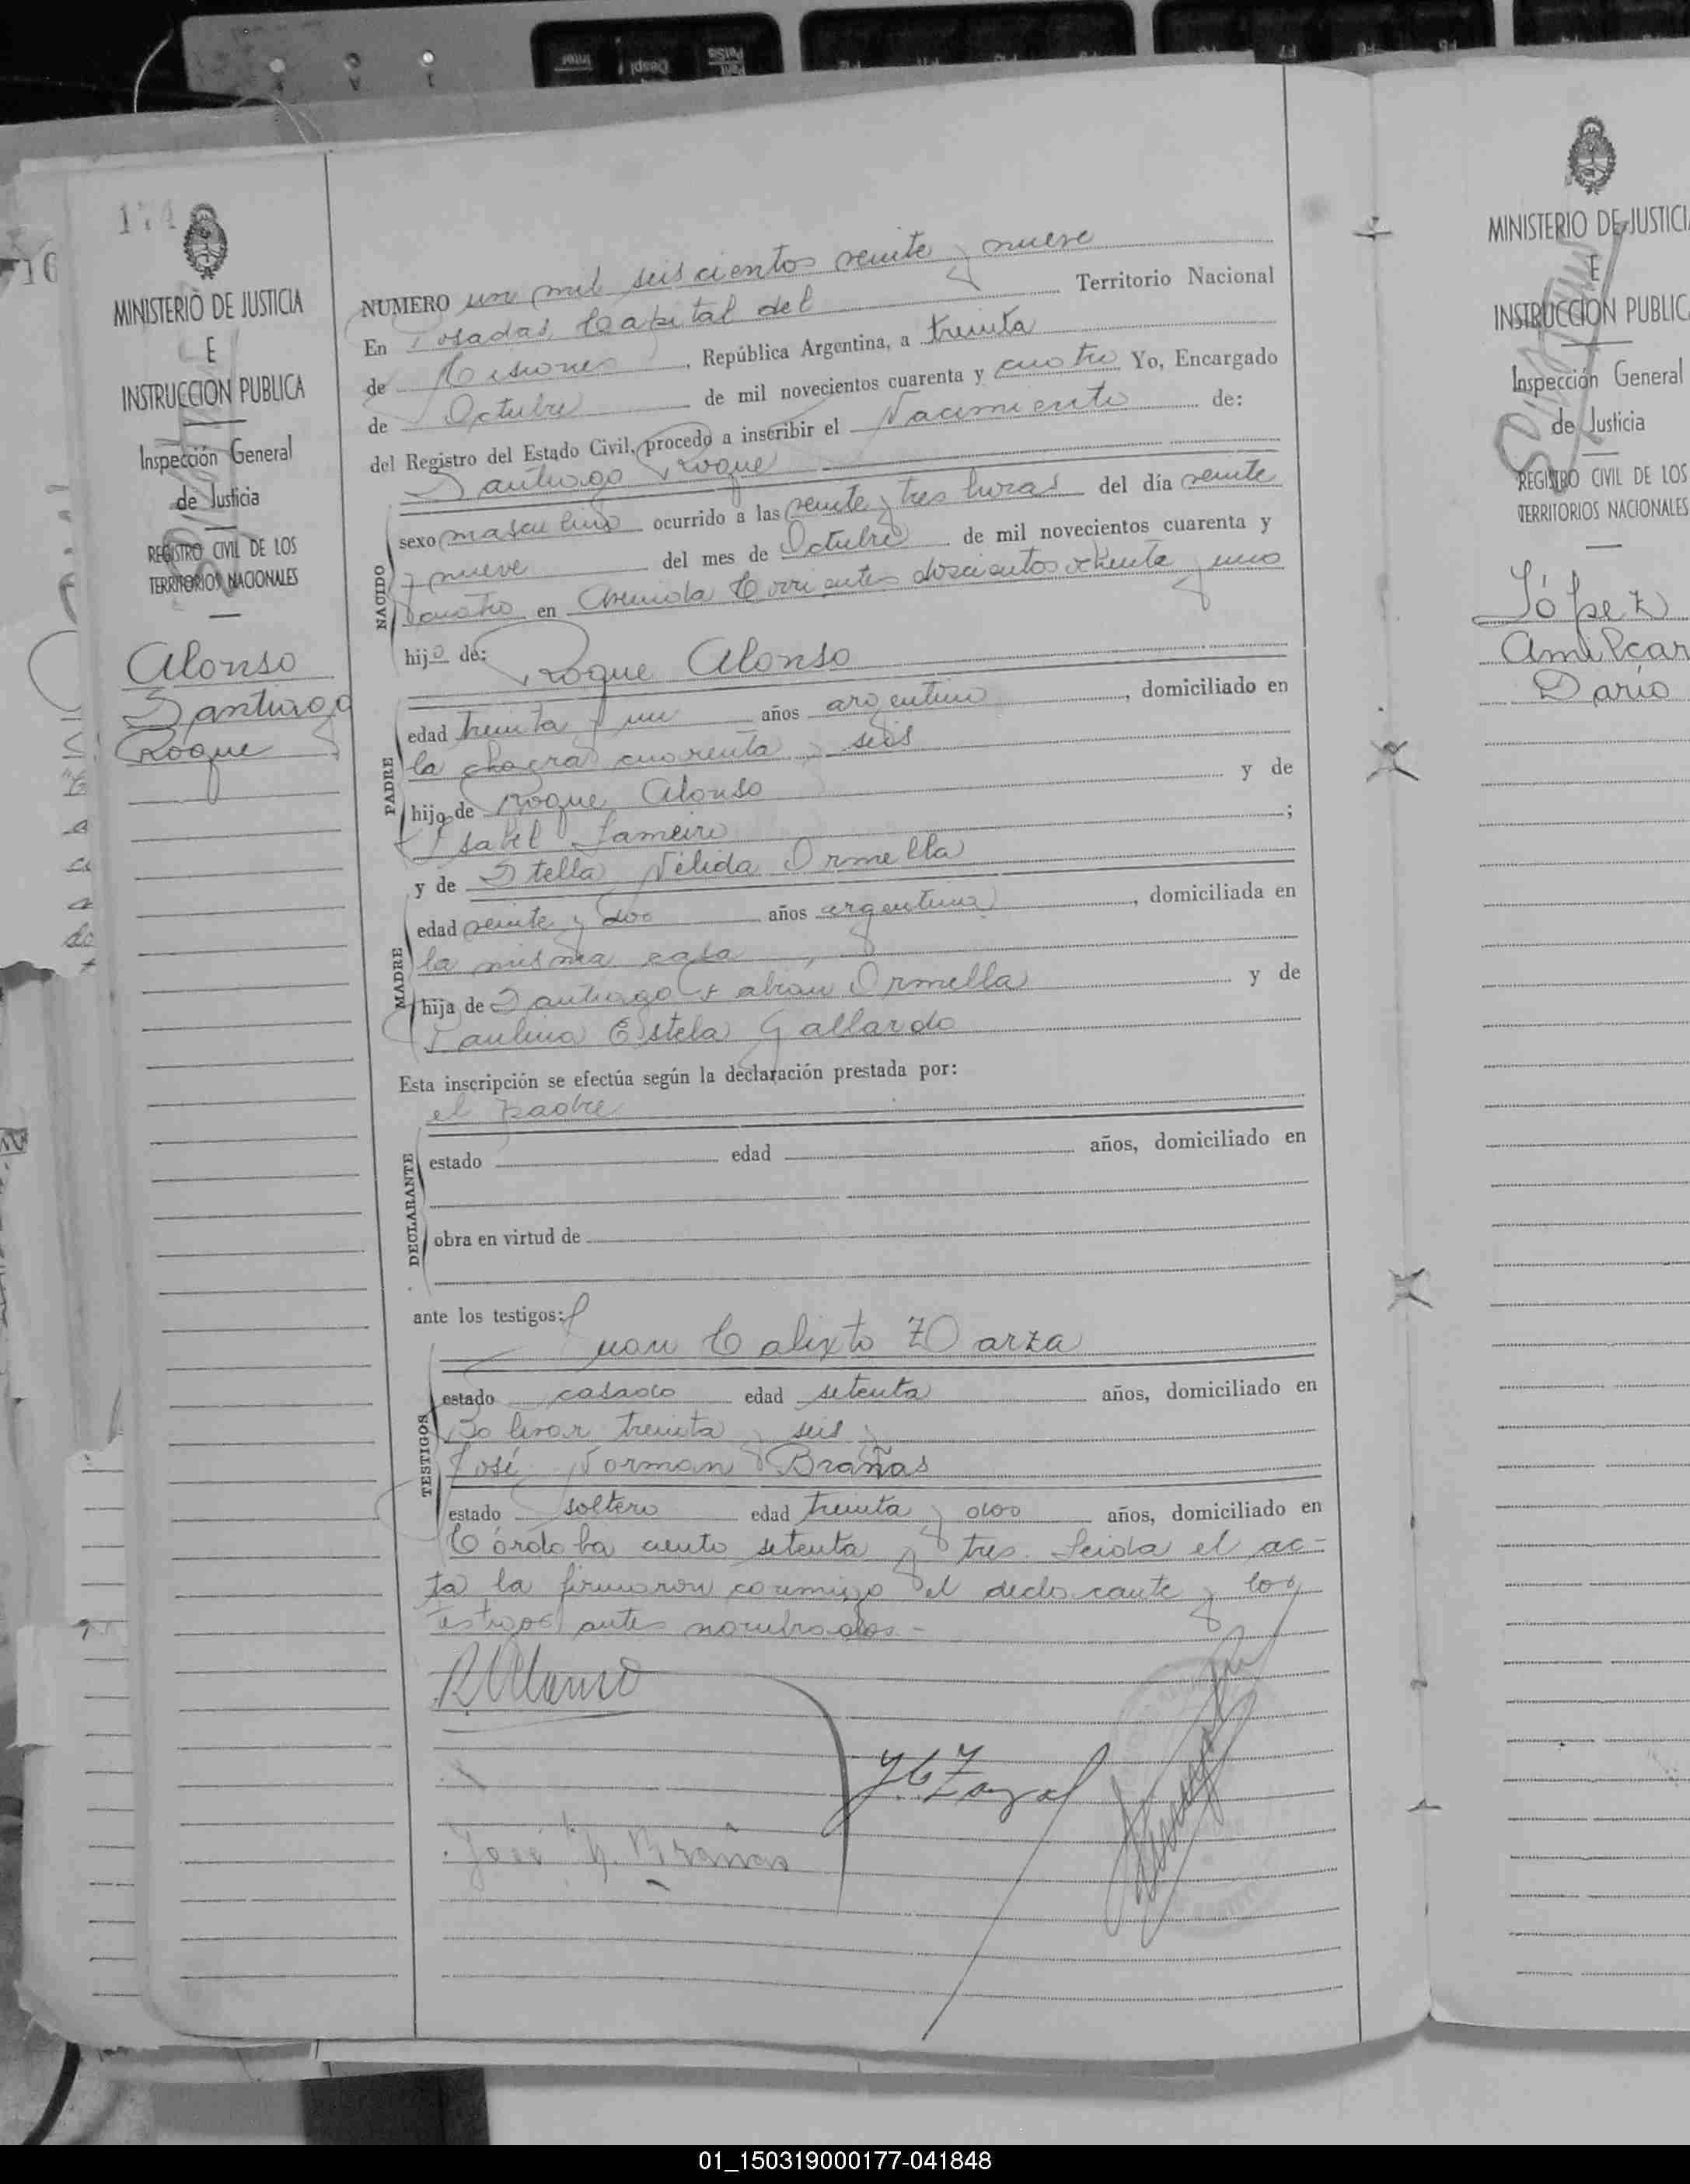 174
MINISTERIO DE JUSTICIA
E
INSTRUCCION PUBLICA
Inspección General
de Justicia
REGISTRO CIVIL DE LOS
TERRITORIOS NACIONALES
Alonso
Santiago
Roque
NUMERO un mil seiscientos veinte y nueve
En Posadas, Capital del Territorio Nacional
de Misiones, República Argentina, a treinta
de Octubre de mil novecientos cuarenta y cuatro Yo, Encargado
del Registro del Estado Civil, procedo a inscribir el Nacimiento de:
Santiago Roque
NACIDO
sexo masculino ocurrido a las veinte y tres horas del día veinte
y nueve del mes de Octubre de mil novecientos cuarenta y
cuatro en Avenida Corrientes doscientos ochenta y uno
hijo de: Roque Alonso
PADRE
edad treinta y un años argentino, domiciliado en
la chacra cuarenta y seis
hijo de Roque Alonso y de
Isabel Lameiro;
y de Stella Nélida Ormella
MADRE
edad veinte y dos años argentina, domiciliada en
la misma casa,
hija de Santiago Fabian Ormella y de
Paulina Estela Gallardo
Esta inscripción se efectúa según la declaración prestada por:
el padre
DECLARANTE
estado edad años, domiciliado en
obra en virtud de
ante los testigos: Juan Calixto Zarza
TESTIGOS
estado casado edad setenta años, domiciliado en
Bolivar treinta y seis y
José Norman Brañas
estado soltero edad treinta y dos años, domiciliado en
Córdoba ciento setenta y tres. Leida el ac-
ta la firmaron conmigo el declarante y los
testigos antes nombrados.-
RAlonso
José N. Brañas
MINISTERIO DE JUSTICIA
E
INSTRUCCION PUBLICA
Inspección General
de Justicia
REGISTRO CIVIL DE LOS
TERRITORIOS NACIONALES
López
Amilcar
Dario
01_150319000177-041848